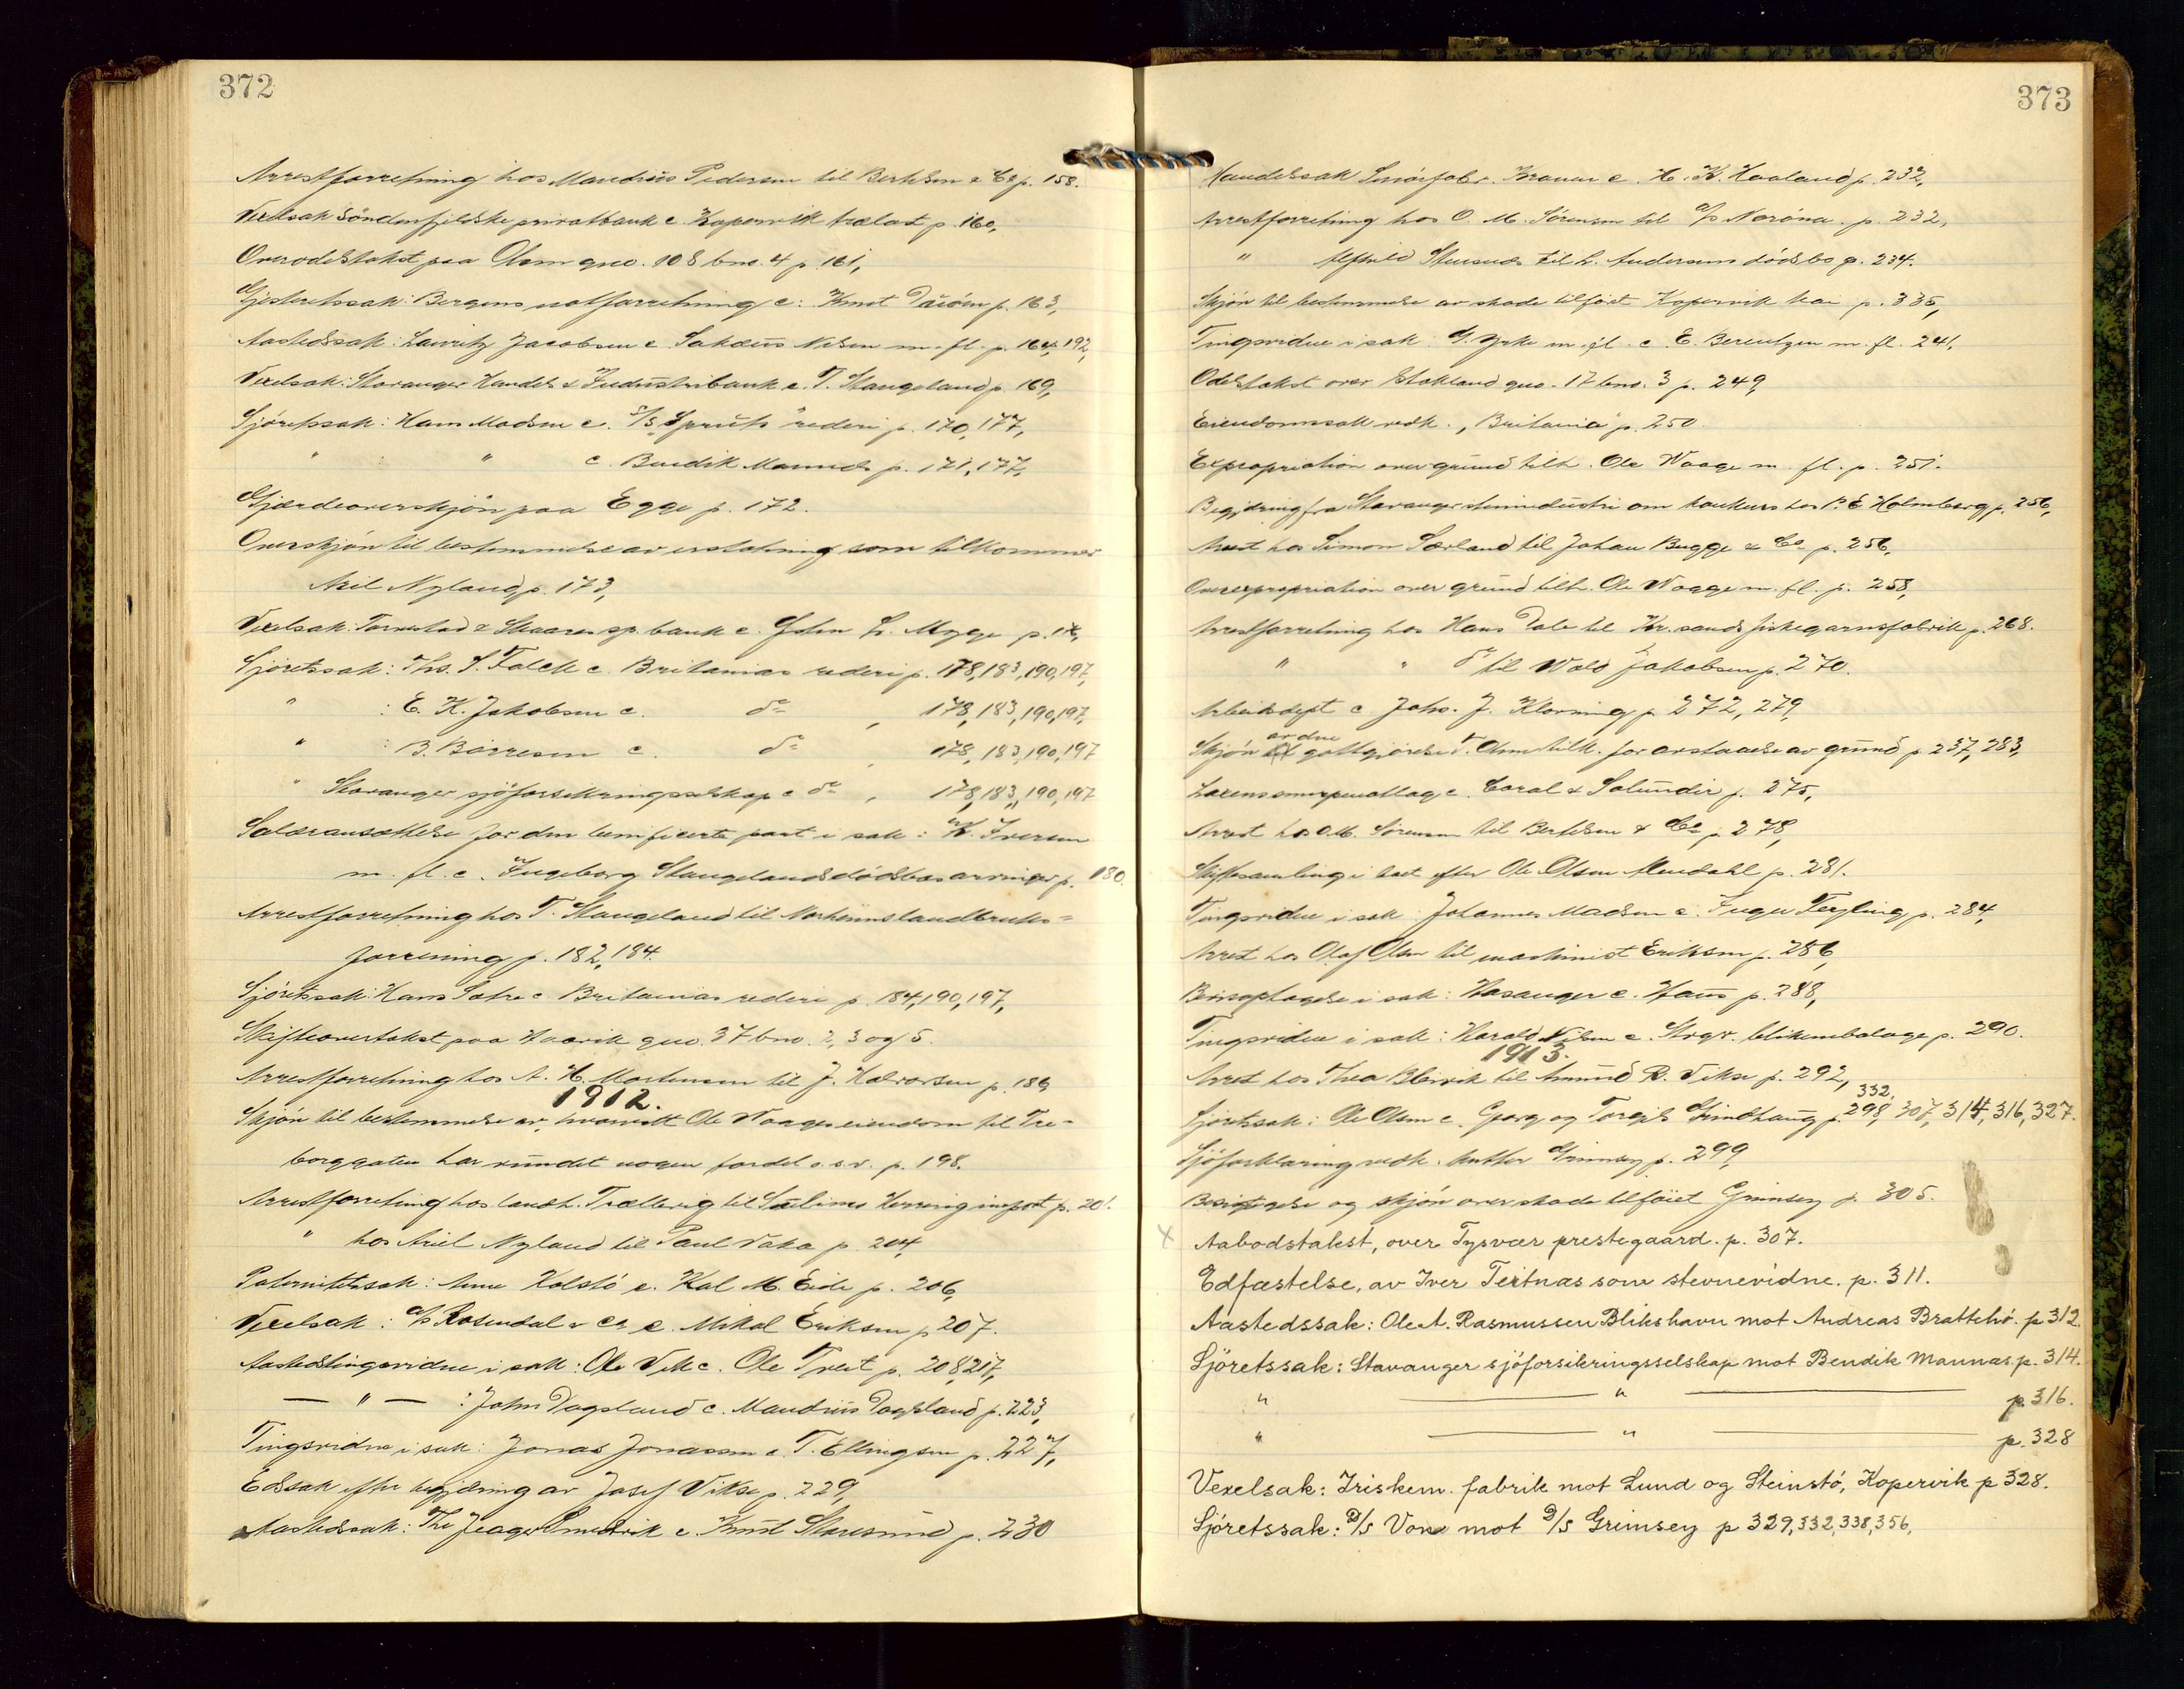 372
Arrestforretning hos Maudius Pedersen til Berhlsen & Co p. 158.
Vexelsak Söndenfjeldske privatbank c. Kopervik trælast p. 160,
Overodelstakst paa Olsen gno. 108 bno. 4 p. 161,
Gjesteretssak: Bergens notforretning c: Knut p. 163,
Aastedssak: Lauritz Jacobsen c. Sakæus Nilsen m. fl. p. 164, 192,
Vexelsak: Stavanger Handels & Industribank c. T. Stangeland p. 169,
Sjöretssak: Hans Madsen c. S/S "Spruts" rederi p. 170, 177,
" : " c. Bendik Mannes p. 171, 177,
Gjerdeoverskjön paa Egge p. 172.
Overskjön til bestemmelse av erstatning som tilkommer
Axel Nyland p. 173,
Vexelsak: Torvestad & Skaares sp. bank c. John L. Mygge p.
Sjöretssak: Ths. S. Falck c. Britanias rederi p. 178, 183, 190, 197,
" : E. K. Jakobsen c. do , 178, 183, 190, 197,
" : B. Börresen c. do , 178, 183, 190, 197
" Stavanger sjöforsikringsselskap c do , 178, 183, 190, 197
Salæransættelse for den benificerte part i sak: K. Iversen
m. fl. c. Ingeborg Stangelands dödsbos arvinger p. 180.
Arrestforretning hos T. Stangeland til Norheimslandbruks=
forening p. 182, 184.
Sjöretssak: Hans Sætre c. Britanias rederi p. 184, 190, 197,
Skifteovertakst paa Haavik gno. 37 bno. 2, 3 og 5.
Arrestforretning hos A. H. Mortensen til J. Halvorsen p. 186,
1912.
Skjön til bestemmelse av, hvorvidt Ole Waages eiendom til Tre-
borggaten har vundet nogen fordel o.s.v. p. 198.
Arrestforretning hos landh. Trællevig til Herring import p. 201.
" hos Axel Nyland til Paul Vaka p. 204,
Paternitetssak: Anne Kolstö c. Kal M. Eide p. 206,
Vexelsak: A/s Rosendal & Co c. Mikal Eriksen p 207.
Aastedstingsvidne i sak: Ole Vik c. Ole Tveit p. 208, 217,
— " — : John Dagsland c. Maudius Dagsland p. 223,
Tingsvidne i sak: Jonas Jonassen c. T. Ellingsen p. 227,
Edssak efter begjæring av Josef Vikse p. 229,
Aastedssak: The Jeager c. Knud Staresund p. 230
373
Handelssak Smörfabr. Kronen c. H. K. Haaland p. 232,
Arrestforretning hos O. M. Sörensen til A/s Noröna. p. 232,
" til L. Andersens dödsbo p. 234.
Skjön til bestemmelse av skade tilföiet Kopervik kai p. 335,
Tingsvidne i sak: G. Yrke m. fl. c. E. Berentzen m. fl. 241.
Odelstakst over Stokland gno. 17 bno. 3 p. 249,
Eiendomssak vedk. "Britania" p. 250
Expropriation over grund tilh. Ole Waage m. fl. p. 251.
Begjæring fra Stavanger stenindustri om konkurs hos P. E. Holmberg p. 256,
Arrest hos Simon Sæland til Johan Bugge & Co p. 256,
Overexpropriation over grund tilh. Ole Waage m. fl. p. 258,
Arrestforretning hos Hans Dale til Kr.sands fiskegarnsfabrik p. 268.
" " do til Wald. Jakobsen p. 270.
Arbeidsdept c Johs. J. Klovning p 272, 279,
Skjön ang. godtgjörelse T. Olsen tilk. for avstaaelse av grund p 237, 283,
c. Coral & Salunder p. 275,
Arrest hos O.M. Sörensen til Berhlsen & Co p. 278,
Skiftesamling i boet efter Ole Olsen Mendahl p. 281.
Tingsvidne i sak: Johannes Madsen c. Inger Tergling p. 284,
Arrest hos Olaf Olsen til maskinist Eriksen p. 286,
Bevisoptagelse i sak: Hasanger c. Haus p. 288,
Tingsvidne i sak: Harald Nilsen c. Svgr. blikemballage p. 290.
1913.
Arrest hos Thea Blevik til Amund R. Vikse p. 292,
332,
Sjöretssak: Ole Olsen c. Georg og Torgils Grindhaug p. 298, 307, 314, 316, 327.
Sjöforklaring vedk. kutter Grimsey p. 299,
Besigtigelse og skjön over skade tilföiet Grimsey p. 305.
x Aabodstakst, over Tysvær prestegaard. p. 307.
Edfæstelse, av Iver Teitnæs som stevnevidne. p. 311.
Aastedssak: Ole A. Rasmussen Blikshavn mot Andreas Brattehö. p 312.
Sjöretssak: Stavanger sjöforsikringsselskap mot Bendik Mannæs. p. 314.
" — " — p. 316.
" — " — p. 328
Vexelsak: Iriskem. fabrik mot Lund og Steinstö, Kopervik p 328.
Sjöretssak: D/S Von mot D/S Grimsey p 329, 332, 338, 356,